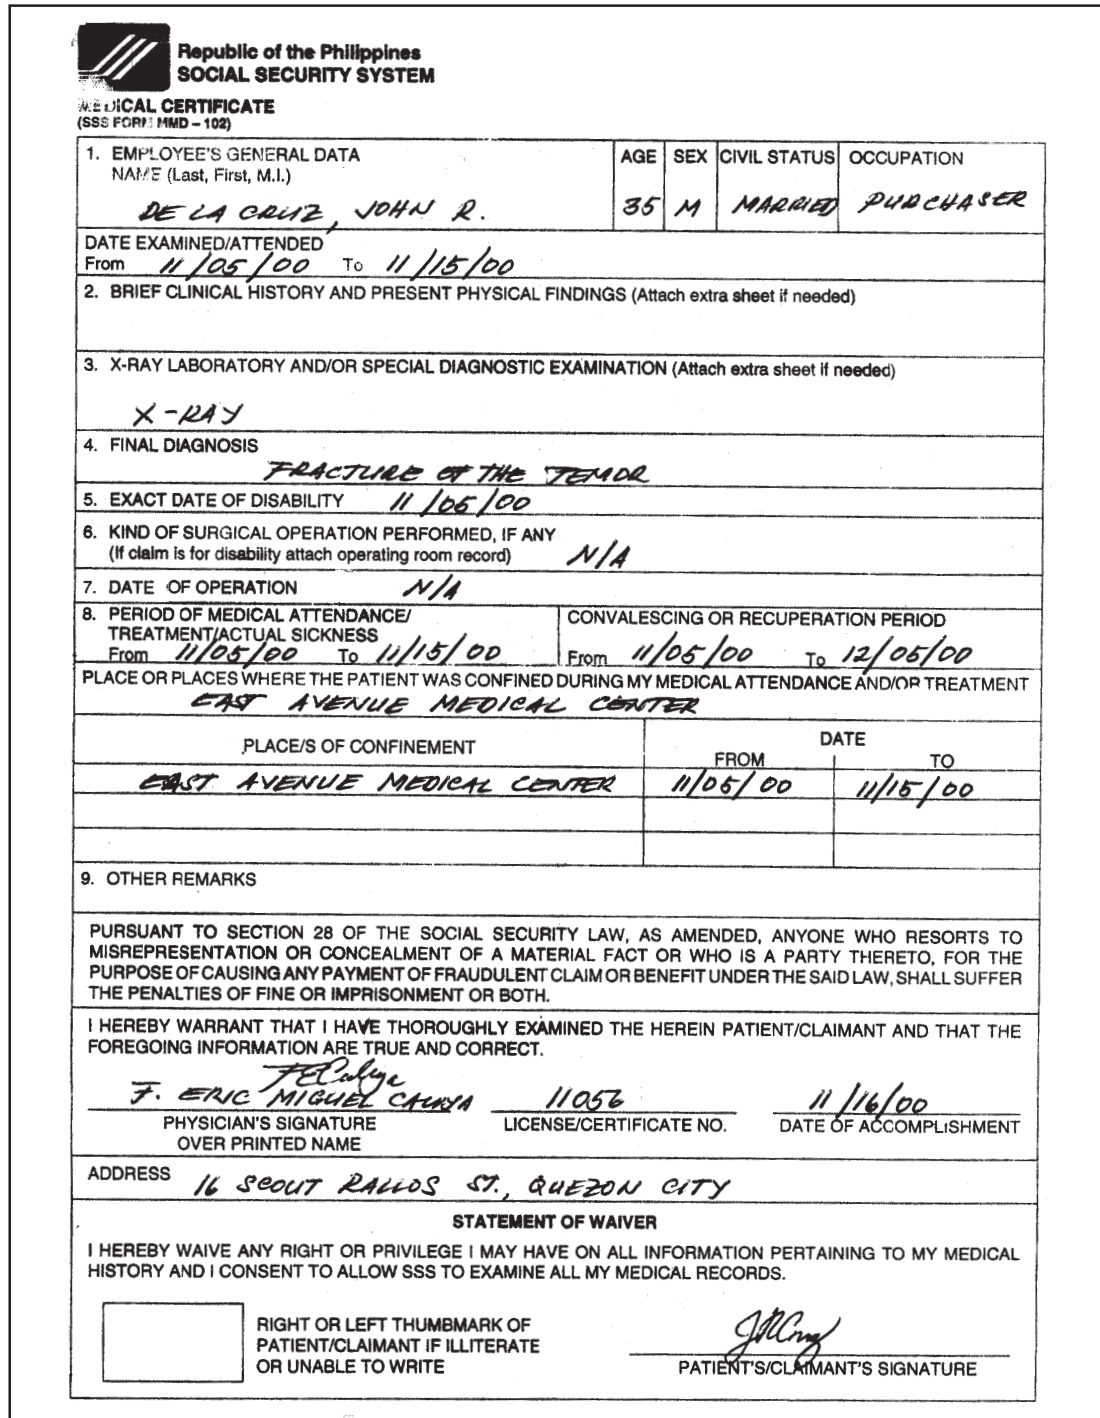 Republic of the Philippines
SOCIAL SECURITY SYSTEM
MEDICAL CERTIFICATE
(SSS FORM MMD – 102)
1. EMPLOYEE'S GENERAL DATA
NAME (Last, First, M.I.)
DE LA CRUZ, JOHN R.
AGE
35
SEX
M
CIVIL STATUS
MARRIED
OCCUPATION
PURCHASER
DATE EXAMINED/ATTENDED
From 11/05/00 To 11/15/00
2. BRIEF CLINICAL HISTORY AND PRESENT PHYSICAL FINDINGS (Attach extra sheet if needed)
3. X-RAY LABORATORY AND/OR SPECIAL DIAGNOSTIC EXAMINATION (Attach extra sheet if needed)
X-RAY
4. FINAL DIAGNOSIS
FRACTURE OF THE TEMOR
5. EXACT DATE OF DISABILITY 11/05/00
6. KIND OF SURGICAL OPERATION PERFORMED, IF ANY
(If claim is for disability attach operating room record) N/A
7. DATE OF OPERATION N/A
8. PERIOD OF MEDICAL ATTENDANCE/
TREATMENT/ACTUAL SICKNESS
From 11/05/00 To 11/15/00
CONVALESCING OR RECUPERATION PERIOD
From 11/05/00 To 12/05/00
PLACE OR PLACES WHERE THE PATIENT WAS CONFINED DURING MY MEDICAL ATTENDANCE AND/OR TREATMENT
EAST AVENUE MEDICAL CENTER
PLACE/S OF CONFINEMENT
DATE
FROM TO
EAST AVENUE MEDICAL CENTER 11/05/00 11/15/00
9. OTHER REMARKS
PURSUANT TO SECTION 28 OF THE SOCIAL SECURITY LAW, AS AMENDED, ANYONE WHO RESORTS TO
MISREPRESENTATION OR CONCEALMENT OF A MATERIAL FACT OR WHO IS A PARTY THERETO, FOR THE
PURPOSE OF CAUSING ANY PAYMENT OF FRAUDULENT CLAIM OR BENEFIT UNDER THE SAID LAW, SHALL SUFFER
THE PENALTIES OF FINE OR IMPRISONMENT OR BOTH.
I HEREBY WARRANT THAT I HAVE THOROUGHLY EXAMINED THE HEREIN PATIENT/CLAIMANT AND THAT THE
FOREGOING INFORMATION ARE TRUE AND CORRECT.
F. ERIC MIGUEL 11056 11/16/00
PHYSICIAN'S SIGNATURE
OVER PRINTED NAME
LICENSE/CERTIFICATE NO.
DATE OF ACCOMPLISHMENT
ADDRESS 16 SCOUT RALLOS ST., QUEZON CITY
STATEMENT OF WAIVER
I HEREBY WAIVE ANY RIGHT OR PRIVILEGE I MAY HAVE ON ALL INFORMATION PERTAINING TO MY MEDICAL
HISTORY AND I CONSENT TO ALLOW SSS TO EXAMINE ALL MY MEDICAL RECORDS.
RIGHT OR LEFT THUMBMARK OF
PATIENT/CLAIMANT IF ILLITERATE
OR UNABLE TO WRITE
PATIENT'S/CLAIMANT'S SIGNATURE